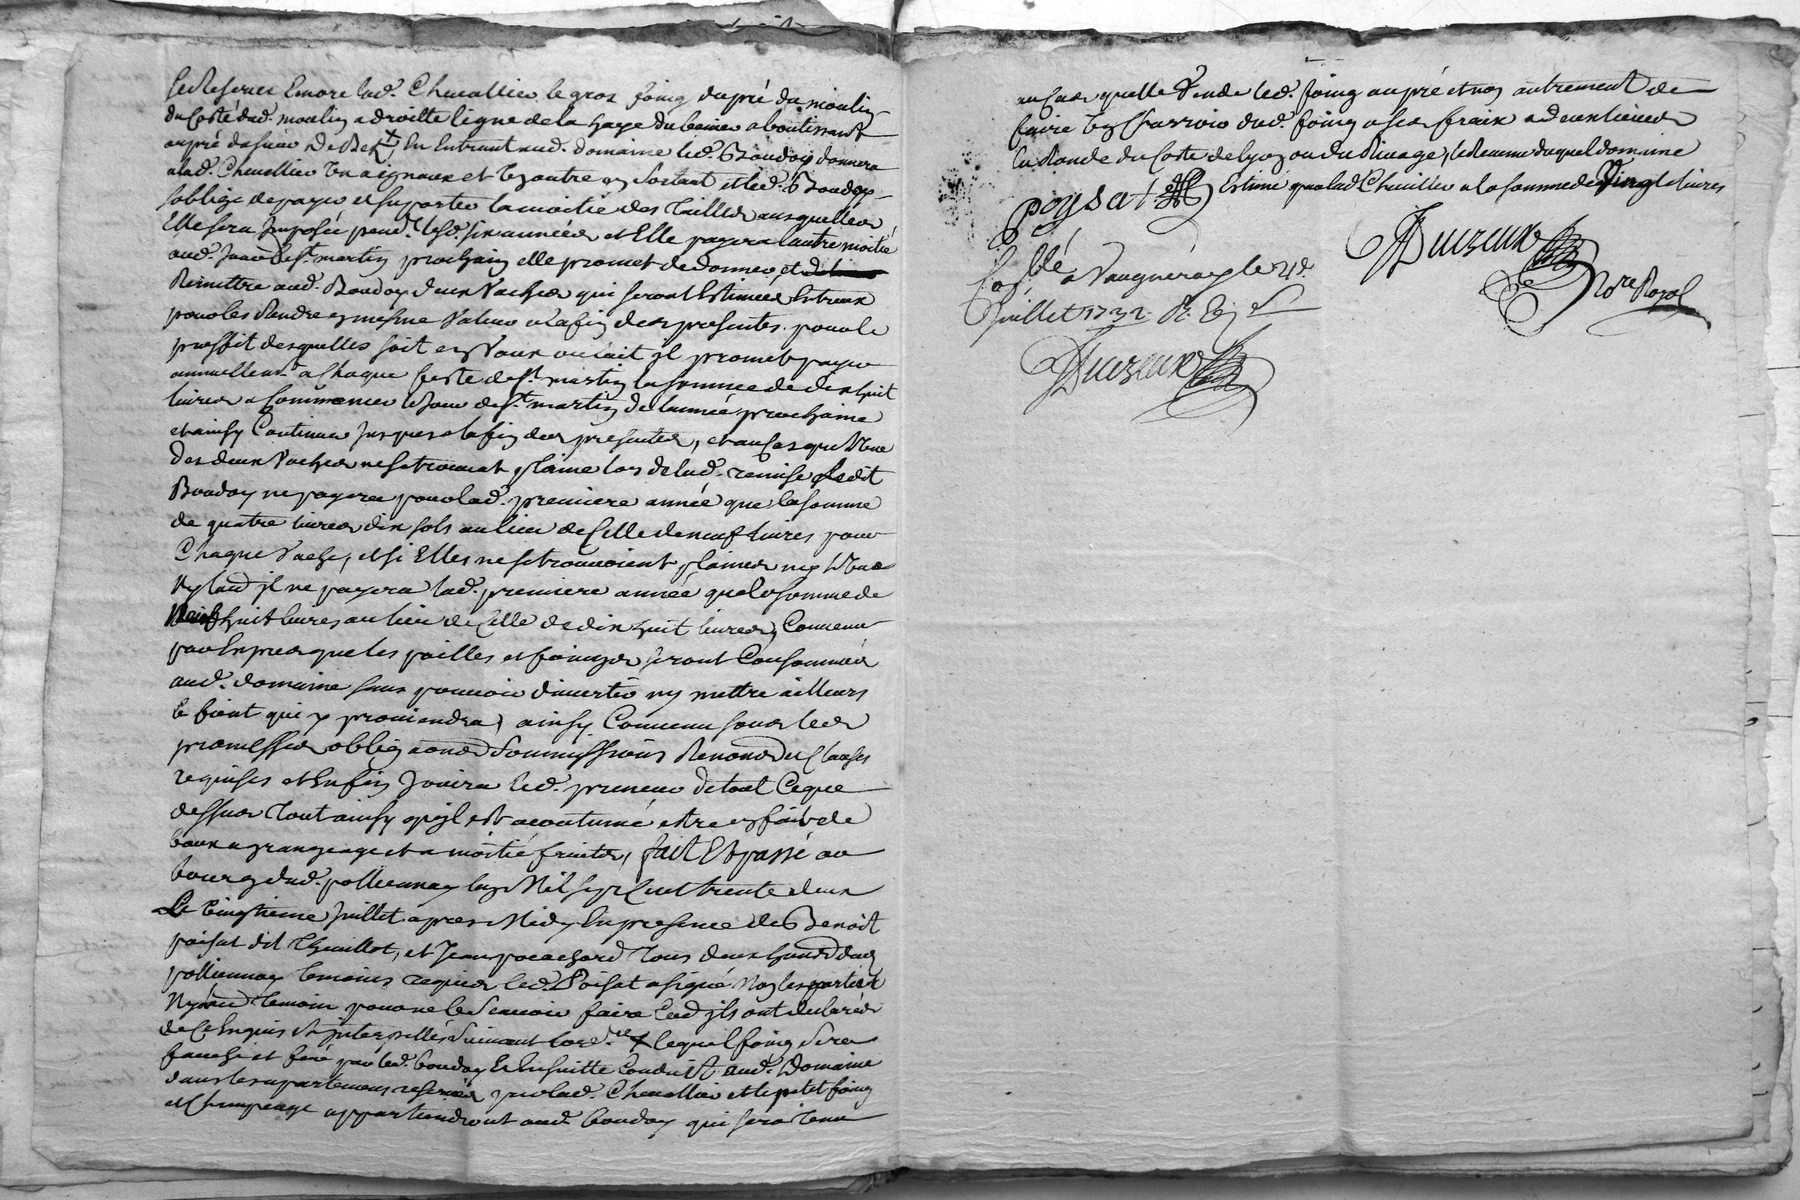 se Reserver Encore lad. Chevallier le gros foing du pré du moulin
du Costé dud. moulin a droitte ligne de la haye du
au pré dessus En Entrant aud. domaine led. Boudoy donnera
a lad. Chevallier un agneaux et un autre en sortant et led. Boudoy
soblige de payer et suporter la moitié des Tailles ausquelles
Elle sera Imposée pend. lesd. six années et Elle payera lautre moitié
aud. Jour de St. martin prochain elle promet de donner et
Remettre aud. Boudoy deux Vaches qui seront Estimées Entreux
pour les Rendre en mesme Valeur a la fin des presentes. pour le
proffit desquelles soit en Vaux ou lait il promet payer
annuellemt. a Chaque feste de St. martin la somme de dix huit
livres a Commencer le Jour de St. martin de lannée prochaine
et ainsy Continuer Jusques a la fin des presentes, et au Cas que Lune
des deux Vaches ne se trouvat plaine lors de lad. remise ledit
Boudoy ne payera pour lad. premiere année que la somme
de quatre livres dix sols au lieu de Celle de neuf livres pour
Chaque Vache, et si Elles ne se trouvoient plaines ny Lune
ny laud. il ne payera lad. premiere année que la somme de
huit livres au lieu de Celle de dix huit livres, Convenu
par Expres que les pailles et foings seront Consommés
aud. domaine sans pouvoir divertir ny mettre ailleurs
le fient qui y proviendra, ainsy Convenu sous les
promesses obligaons Soumissions Renonons et Clauses
requises et Enfin Jouira led. preneur de tout Ceque
dessus Tout ainsy quil est acoutumé estre en fait de
baux a grangeage et a moitié fruits, fait Et passé au
bourg dud. pollionnay lan Mil sept Cent trente deux
Le Vingtieme Juillet apres Midy En presence de Benoit
poisat dit Theuillot, et Jean Tous deux dud.
pollionnay temoins requis led. Poisat a signé Non les parties
Ny laud. temoin pour ne le Scavoir faire Ced. ils ont declarés
de Ce Enquis et interpellés Suivant lord.ce x lequel foing Sera
fauché et fené par led. boudoy Et Ensuitte Conduit aud. Domaine
dans les apartemens reservés par lad. Chevallier et le petit foing
et Champeage appartiendront aud. boudoy qui sera Tenu
au Cas quelle Vende led. foing au pré et non autrement de
faire un Charroir dud. foing a ses fraix a deux lieues
En Ronde du Coste de lyon ou du Rivage, le Revenu duquel domaine
Estimé par lad. Chevallier a la somme de Vingt livres
Poysat
Duizeux
Nore Royal
Collé a Vaugneray le 21e.
Juillet 1732
Duizeux